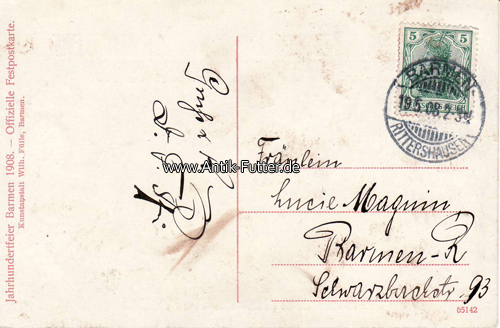 Jahrhundertfeier Barmen 1908. — Offizielle Festpostkarte.
Kunstanstalt Wilh. Fülle, Barmen.
5 5
BARMEN
19.5.08.2-3N
RITTERSHAUSEN
www.Antik-Futter.de
Fräulein
Lucie Maguin
Barmen-R
Schwarzbachstr. 93
05142